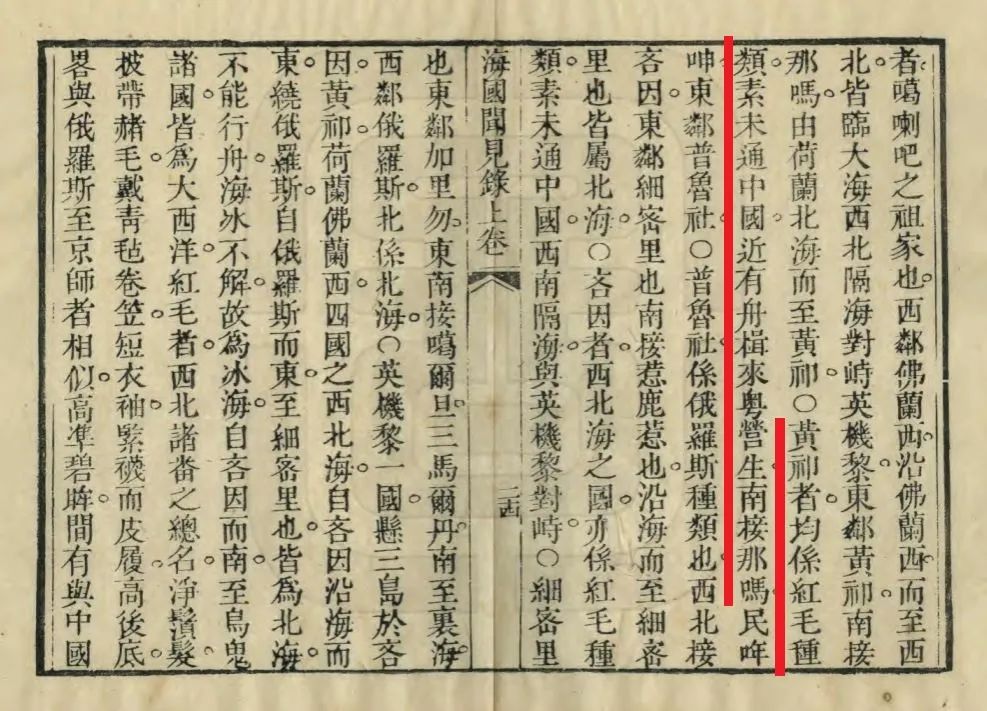 者噶喇吧之祖家也西鄰佛蘭西沿佛蘭西而至西
北皆臨大海西北隔海對峙英機黎東鄰黃祁南接
那嗎由荷蘭北海而至黃祁〇黃祁者均係紅毛種
類素未通中國近有舟楫來粵營生南接那嗎民哖
呻東鄰普魯社〇普魯社係俄羅斯種類也西北接
吝因東鄰細密里也南接惹鹿惹也沿海而至細密
里也皆屬北海〇吝因者西北海之國亦係紅毛種
類素未通中國西南隔海與英機黎對峙〇細密里
海國聞見錄上卷
也東鄰加里勿東南接噶爾旦三馬爾丹南至裏海
西鄰俄羅斯北係北海〇英機黎一國懸三島於吝
因黃祁荷蘭佛蘭西四國之西北海自吝因沿海而
東繞俄羅斯自俄羅斯而東至細密里也皆爲北海
不能行舟海冰不解故爲冰海自吝因而南至烏鬼
諸國皆爲大西洋紅毛者西北諸番之總名淨鬚髮
披帶赭毛戴青毡卷笠短衣袖緊襪而皮履高後底
畧與俄羅斯至京師者相似高準碧眸間有與中國